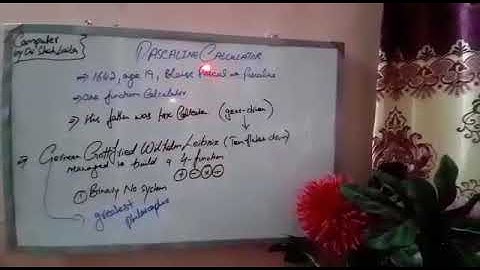 Computer
by Dr
PASCALINE CALCULATOR
→ 1642, age 19, Blaise Pascal → Pascaline
→ One function Calculator
→ His father was tax Collector (gear-driven)
→ German Gottfried Wilhelm Leibniz (
managed to build a 4-function
+ - × ÷
① Binary No System
greatest
philosopher